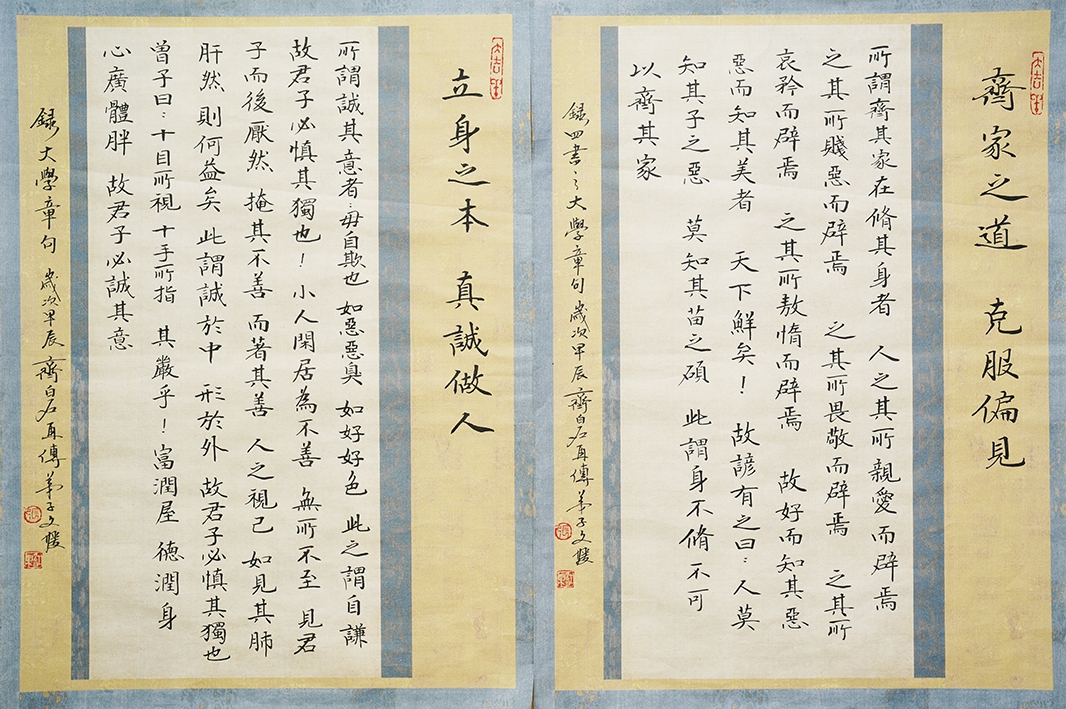 齊家之道 克服偏見
所謂齊其家在脩其身者 人之其所親愛而辟焉
之其所賤惡而辟焉 之其所畏敬而辟焉 之其所
哀矜而辟焉 之其所敖惰而辟焉 故好而知其惡
惡而知其美者 天下鮮矣！故諺有之曰：人莫
知其子之惡 莫知其苗之碩 此謂身不脩 不可
以齊其家
錄四書：大學章句 歲次甲辰 齊白石再傳弟子文
立身之本 真誠做人
所謂誠其意者：毋自欺也 如惡惡臭 如好好色 此之謂自謙
故君子必慎其獨也！小人閑居為不善 無所不至 見君
子而後厭然 掩其不善 而著其善 人之視己 如見其肺
肝然 則何益矣 此謂誠於中 形於外 故君子必慎其獨也
曾子曰：十目所視 十手所指 其嚴乎！富潤屋 德潤身
心廣體胖 故君子必誠其意
錄大學章句 歲次甲辰 齊白石再傳弟子文